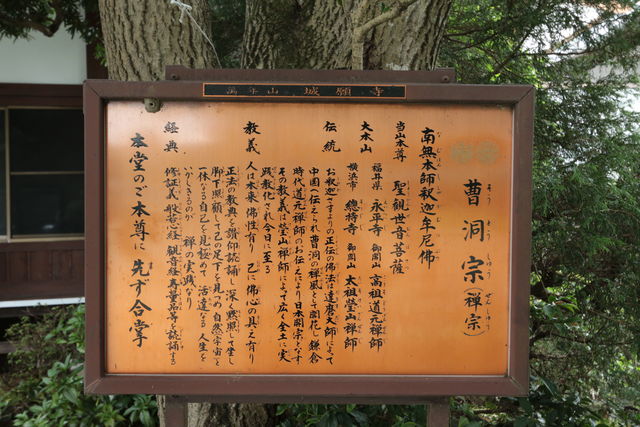 萬年山 城願寺
曹洞宗(禅宗)
そうとうしゅう ぜんしゅう
南無本師釈迦牟尼佛
当山本尊 聖観世音菩薩
大本山 福井県 永平寺 御開山 高祖道元禅師
横浜市 總持寺 御開山 太祖瑩山禅師
伝統 お釈迦さまよりの正伝の佛法は達磨大師によって
中国へ伝えられ曹洞の禅風として開花し鎌倉
時代道元禅師のお伝えにより日本開宗となす
その教義は瑩山禅師によって広く全土に実
践教化され今日に至る
教義 人は本来佛性有り 己に佛心の具える有り
正法の教典を讃仰読誦し深く黙照して坐し
脚下照顧して己の足下を見つめ自然(宇宙)と
一体なる自己を見極めて 活達なる人生を
いかしきるのが 禅の実践なり
経典 修証義 般若心経 観音経 寿量品等を読誦する
本堂のご本尊に 先ず合掌